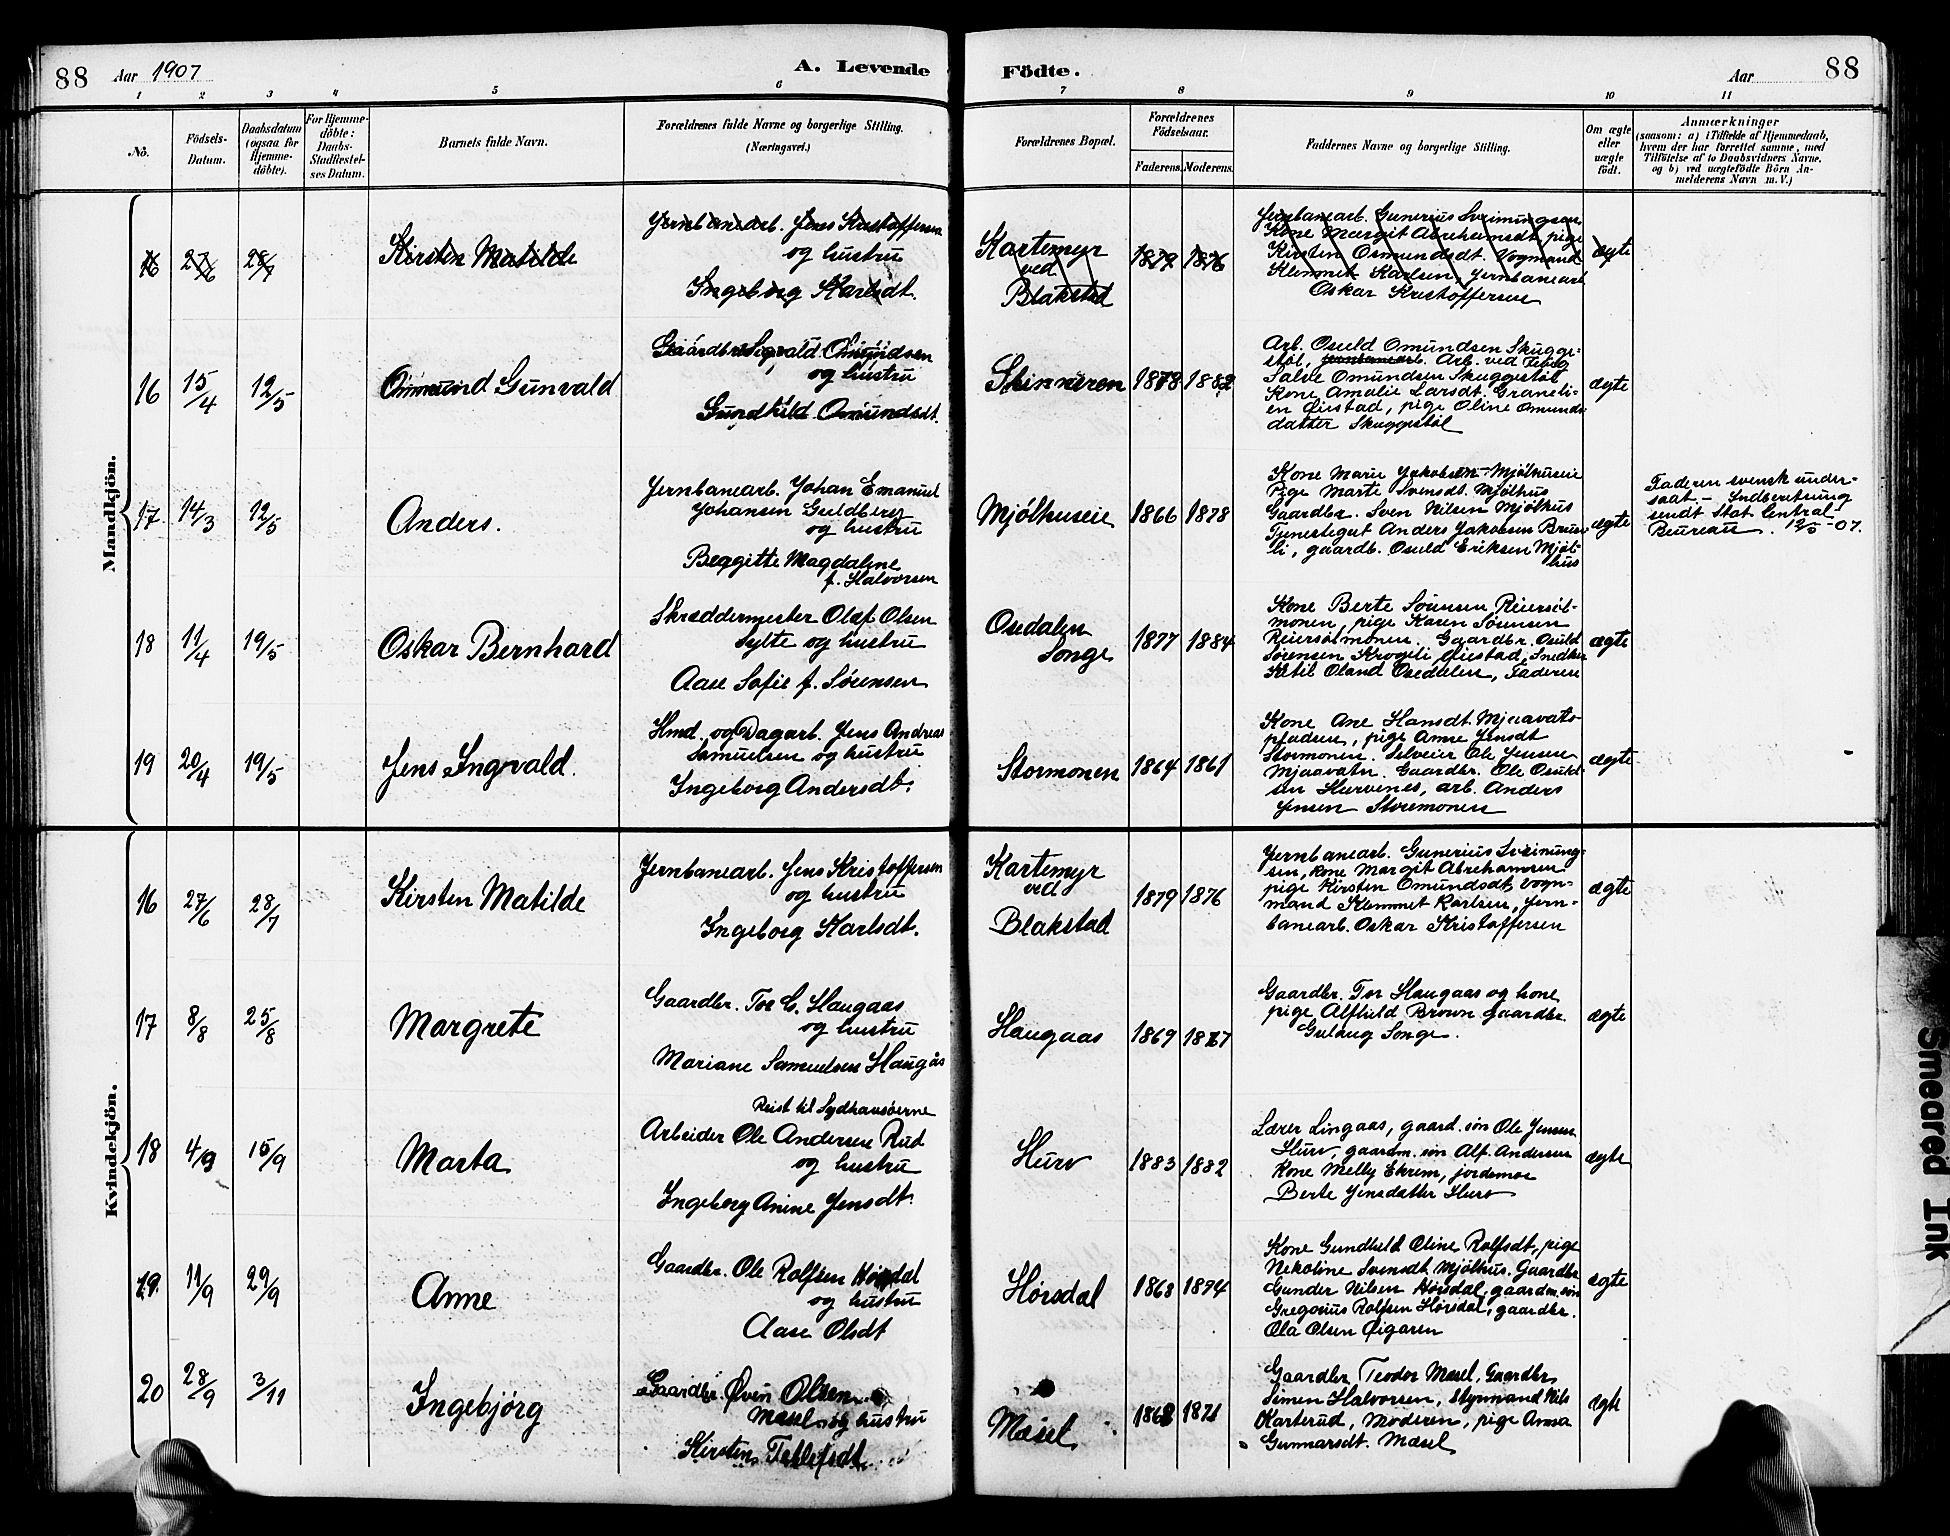 88 Aar 1907 A. Levende Födte. Aar 88
1 2 3 4 5 6 7 8 9 10 11
No.
Födsels-
Datum.
Daabsdatum
(ogsaa for
Hjemme-
döbte).
For Hjemme-
döbte:
Daabs-
Stadfæstel-
ses Datum.
Barnets fulde Navn.
Forældrenes fulde Navne og borgerlige Stilling.
(Næringsvei.)
Forældrenes Bopæl.
Forældrenes
Födselsaar.
Faderens. Moderens.
Faddernes Navne og borgerlige Stilling.
Om ægte
eller
uægte
födt.
Anmærkninger
(saasom: a) i Tilfælde af Hjemmedaab,
hvem der har forrettet samme, med
Tilföielse af to Daabsvidners Navne,
og b) ved uægtefödte Börn An-
melderens Navn m. V.)
Mandkjön.
16 27/6 28/7
Kirsten Matilde
Jernbanearb. Jens Kristoffersen
og hustru
Ingeborg Karlsdt.
Kartemyr
ved
Blakstad
1879 1876
Jernbanearb. Gunerius Sveinungsen
Kone Margit Abrehamsdt. pige
Kirsten Osmundsdt. Vogmand
Klemmet Karlsen, Jernbanearb
Oskar Kristoffersen
ægte
16 15/4 12/5
Ommund Gunvald
Gaardbr. Sigvald Omundsen
og hustru
Gundhild Omundsdt.
Skinneren
1878 1882
Arb. Osuld Omundsen Skugge-
støl, jernbanearb. Arb. ved
Salve Omundsen Skuggestøl
Kone Amalie Larsdt. Graneli-
en Øiestad, pige Oline Omunds-
datter Skuggestøl
ægte
17 14/3 12/5
Anders.
Jernbanearb. Johan Emanuel
Johansen Guldberg
og hustru
Beggitte Magdalene
f. Halvorsen
Mjølhuseie
1866 1878
Kone Marie Jakobsen Mjølhuseie
Pige Marte Svensdt. Mjølhus
Gaardbr. Sven Nilsen Mjølhus
Tjenestegut Anders Jakobsen Bruse-
li, gaardb. Osuld Eriksen Mjøl-
hus
ægte
Faderen svensk under-
saat – Indberetning
sendt Stat. Central-
Beureau. 12/5 -07.
18 11/4 19/5
Oskar Bernhard
Skræddermester Olaf Olsen
Sylte og hustru
Aase Sofie f. Sørensen
Osedalen
Songe
1877 1884
Kone Berte Sørensen Reiersøl-
monen, pige Karen Sørensen
Reiersølmonen. Gaardbr. Osuld
Sørensen Krogeli Øiestad, Snedker
Ketil Oland Osedalen, Faderen
ægte
19 20/4 19/5
Jens Ingvald.
Hmd. og Dagarb. Jens Andreas
Samuelsen og hustru
Ingeborg Andersdt.
Stormonen
1864 1861
Kone Ane Hansdt. Mjaavats-
pladsen, pige Anne Jensdt
Stormonen. Selveier Ole Jensen
Mjaavatn. Gaardbr. Ole Osuld-
sen Hurvenes, arb. Anders
Jensen Storemonen
ægte
Kvindekjön.
16 27/6 28/7
Kirsten Matilde
Jernbanearb. Jens Kristoffersen
og hustru
Ingeborg Karlsdt.
Kartemyr
ved
Blakstad
1879 1876
Jernbanearb. Gunerius Sveinung-
sen, kone Margit Abrehamsen
pige Kirsten Omundsdt, vogn-
mand Klemmet Karlsen, jern-
banearb. Oskar Kristoffersen
ægte
17 8/8 25/8
Margrete
Gaardbr. Tor C. Haugaas
og hustru
Mariane Samuelsen Haugås
Haugaas
1869 1877
Gaardbr. Tor Haugaas og kone
pige Alfhild Brown gaardbr.
Gulaug Songe.
ægte
18 4/9 15/9
Marta
Reist til Sydhavsøerne
Arbeider Ole Andersen Rud
og hustru
Ingeborg Anine Jensdt.
Hurv
1883 1882
Lærer Lingaas, gaard. søn Ole Jensen
Hurv, gaardm. søn Alf. Andersen
Kone Melby Ekrem, jordemor
Berte Jensdatter Hurv
ægte
19. 11/9 29/9
Anne
Gaardbr. Ole Rolfsen Hørsdal
og hustru
Aase Olsdt
Hørsdal
1868 1874
Kone Gundhild Oline Rolfsdt, pige
Nekoline Svensdt Mjølhus. Gaardbr
Gunder Nilsen Hørsdal, gaardm. søn
Gregorius Rolfsen Hørsdal, gaardbr.
Ola Olsen Øigaren
ægte
20 28/9 3/11
Ingebjørg
Gaardbr. Øven Olsen
Mæsel og hustru
Kirsten Tellefsdt.
Mæsel
1868 1871
Gaardbr Teodor Mæsel, Gaardbr
Simen Halvorsen, Styrmand Nils
Karterud, Moderen, pige Anna
Gunnarsdt. Mæsel
ægte
Smeared Ink